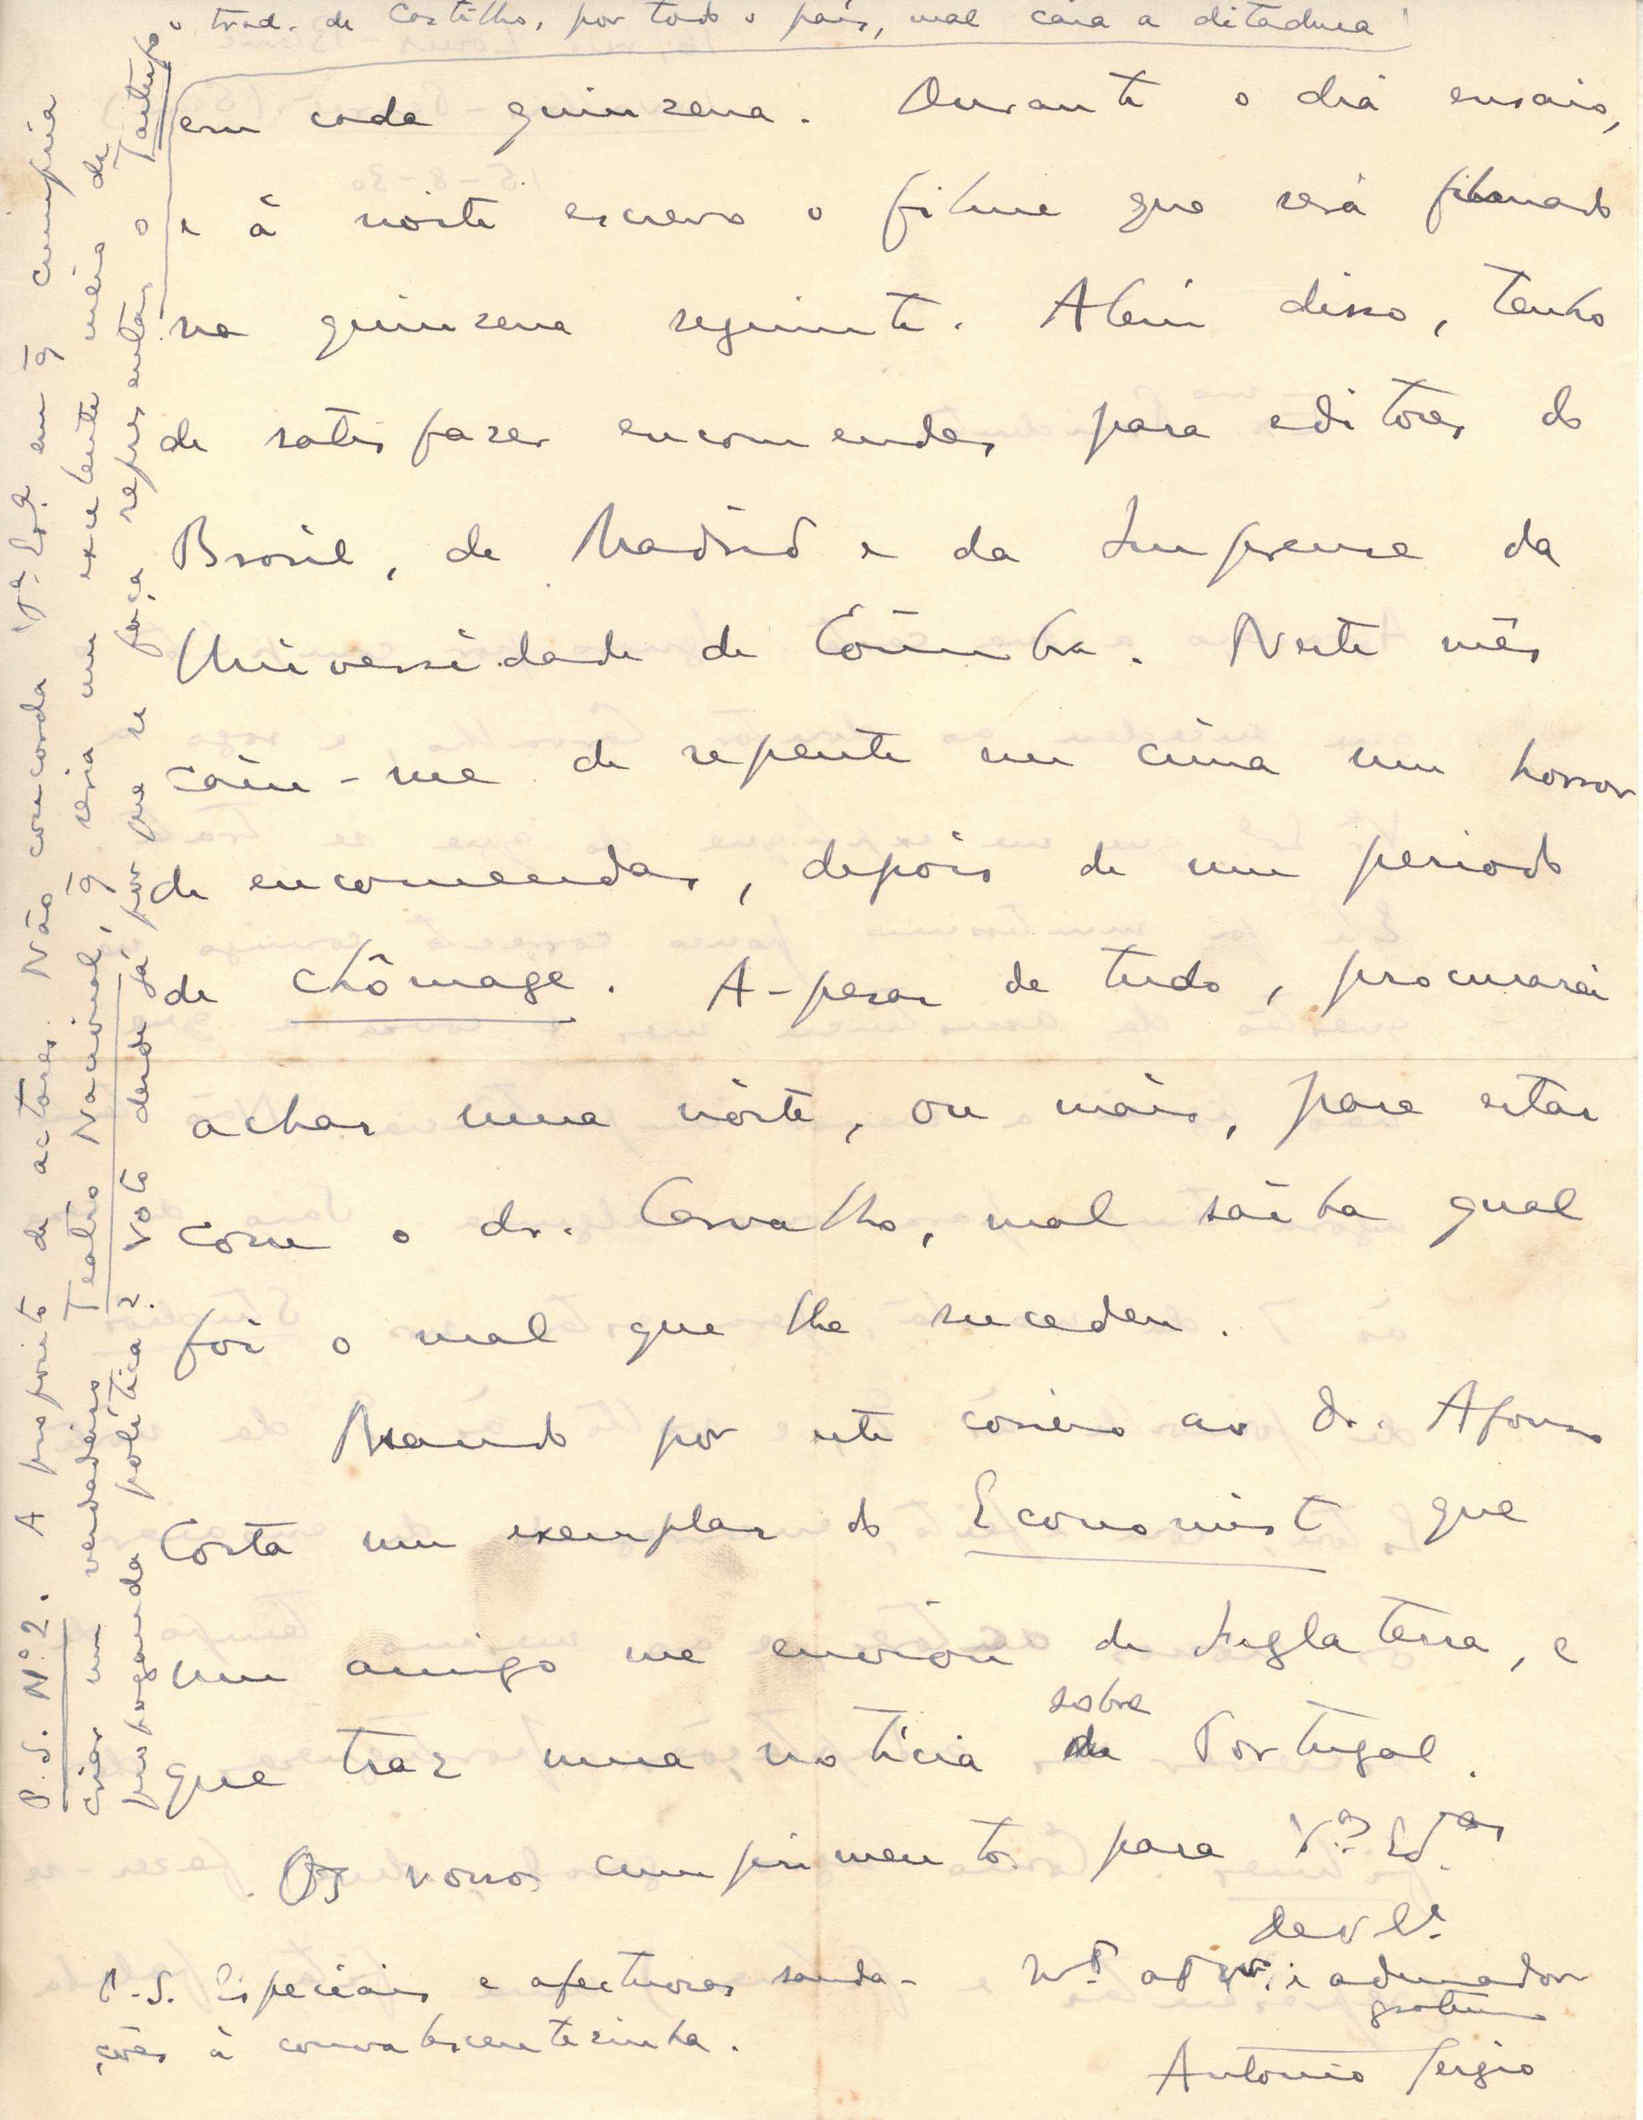 em cada quinzena. Durante o dia ensaio,
e à noite escrevo o filme que será filmado
na quinzena seguinte. Além disso, tenho
de satisfazer encomendas para editores do
Brasil, de Madrid e da Imprensa da
Universidade de Coimbra. Neste mês
caíu-me de repente em cima um horror
de encomendas, depois de um periodo
de chômage. A-pesar de tudo, procurarei
achar uma noite, ou mais, para estar
com o dr. Carvalho, mal saiba qual
foi o mal que lhe sucedeu.
Mando por este correio ao dr. Afonso
Costa um exemplar do Economist que
um amigo me enviou de Inglaterra, e
que traz uma notícia sobre Portugal.
Os nossos cumprimentos para V.as Ex.as
De V. Ex.a
m.to at.to e admirador
gratíssimo
Antonio Sergio
P.S. Especiais e afectuosas sauda-
ções à convalescentezinha.
P.S. Nº 2. A proposito de actores. Não concorda V.a Ex.a em q̃ cumpria
criar um verdadeiro Teatro Nacional, q̃ seria um excelente meio de
propaganda política? Voto desde já por que se faça representar o Tartufo
o trad. de Castilho, por todo o país, mal caia a ditadura!